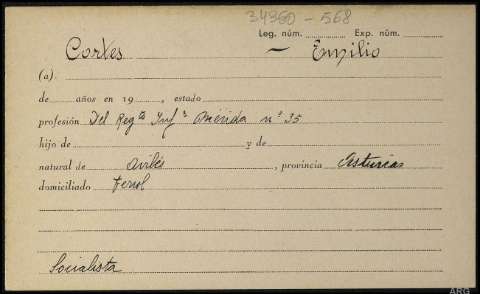 34960 - 568
Leg. núm. Exp. núm.
Cortes — Emilio
(a)
de años en 19 , estado
profesión Del Regto Infa Mérida nº 35
hijo de y de
natural de Avilés , provincia Asturias
domiciliado Ferrol
Socialista
ARG